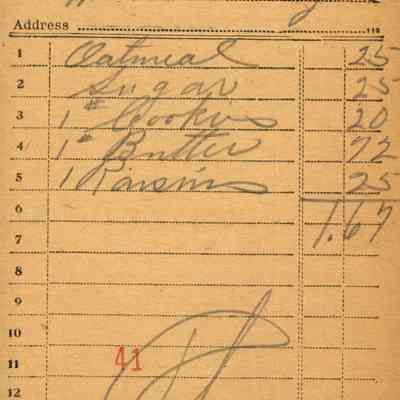 Address 118
1 Oatmeal 25
2 Sugar 25
3 1# Cookies 20
4 1# Butter 72
5 1 Raisins 25
6
7 1.67
8
9
10
11 41
12